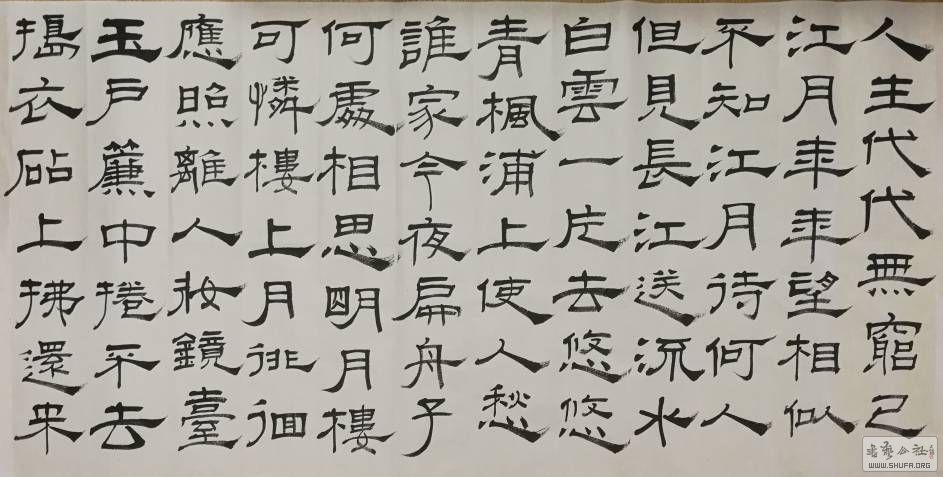 人生代代無窮已
江月年年望相似
不知江月待何人
但見長江送流水
白雲一片去悠悠
青楓浦上使人愁
誰家今夜扁舟子
何處相思明月樓
可憐樓上月徘徊
應照離人妝鏡臺
玉戶簾中捲不去
搗衣砧上拂還来
书艺公社
WWW.SHUFA.ORG